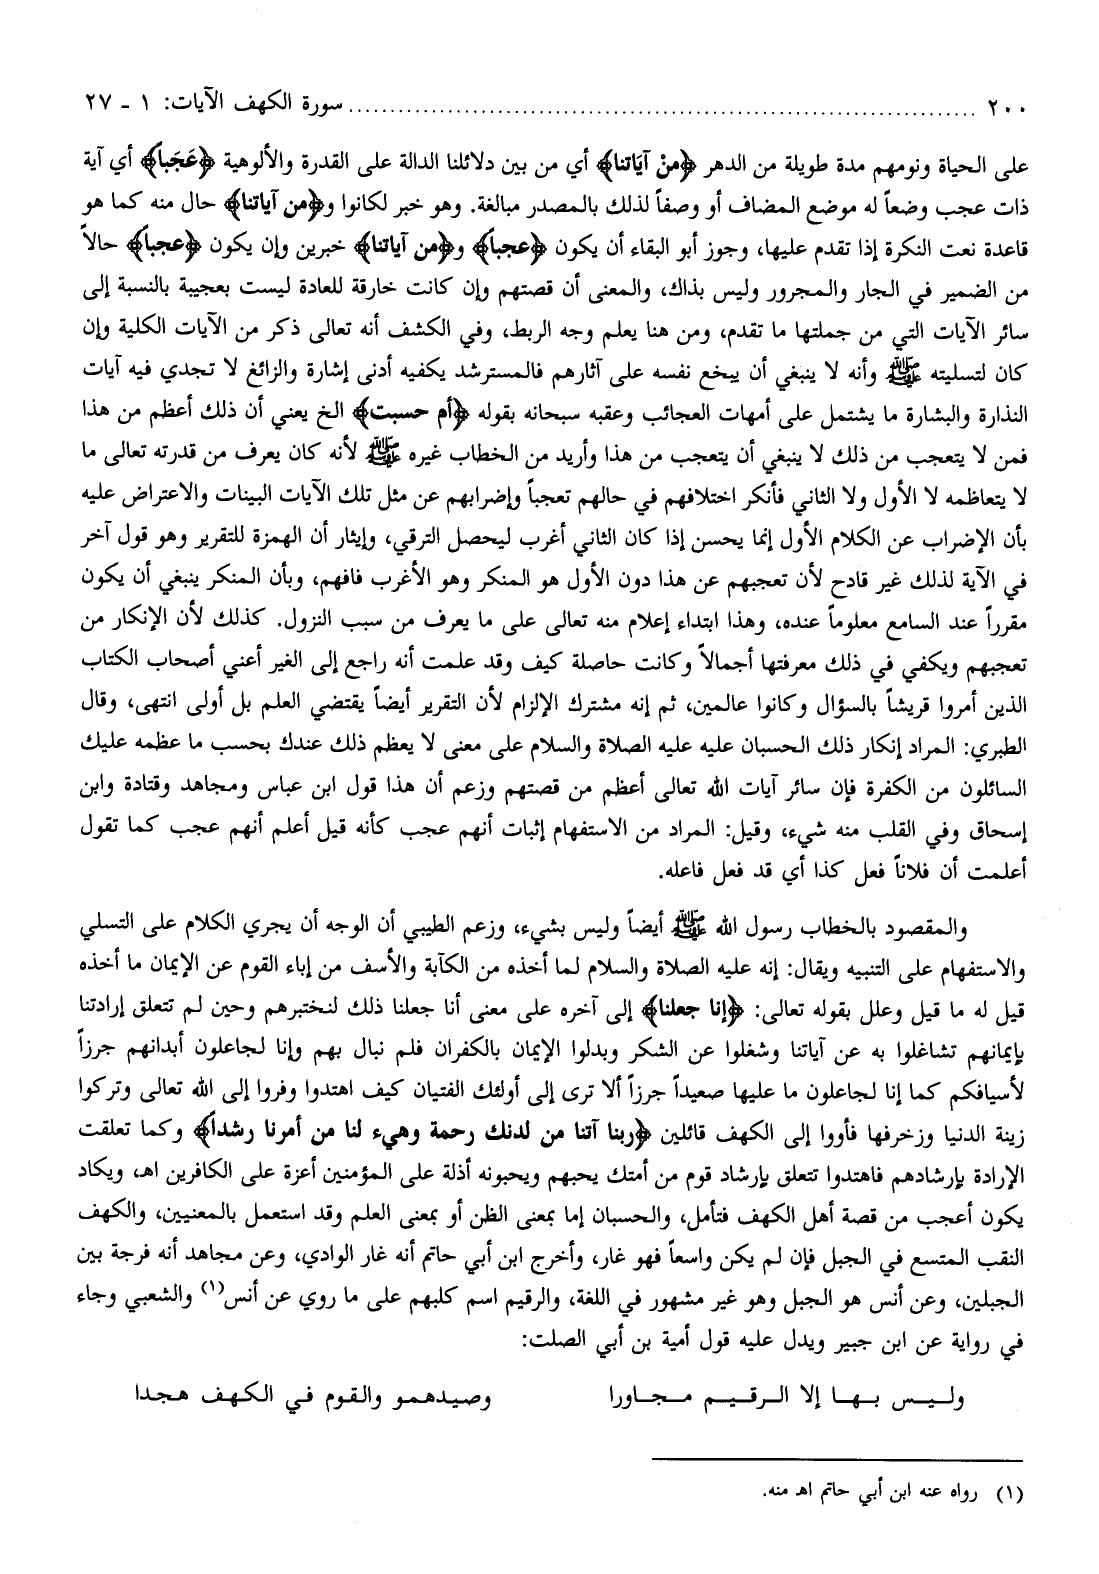 ٢٠٠ ........................................................................ سورة الكهف الآيات: ١ - ٢٧
على الحياة ونومهم مدة طويلة من الدهر ﴿مِنْ آيَاتنا﴾ أي من بين دلائلنا الدالة على القدرة والألوهية ﴿عَجَباً﴾ أي آية
ذات عجب وضعاً له موضع المضاف أو وصفاً لذلك بالمصدر مبالغة. وهو خبر لكانوا و﴿من آياتنا﴾ حال منه كما هو
قاعدة نعت النكرة إذا تقدم عليها، وجوز أبو البقاء أن يكون ﴿عجباً﴾ و﴿من آياتنا﴾ خبرين وإن يكون ﴿عجباً﴾ حالاً
من الضمير في الجار والمجرور وليس بذاك، والمعنى أن قصتهم وإن كانت خارقة للعادة ليست بعجيبة بالنسبة إلى
سائر الآيات التي من جملتها ما تقدم، ومن هنا يعلم وجه الربط، وفي الكشف أنه تعالى ذكر من الآيات الكلية وإن
كان لتسليته ﷺ وأنه لا ينبغي أن يبخع نفسه على آثارهم فالمسترشد يكفيه أدنى إشارة والزائغ لا تجدي فيه آيات
النذارة والبشارة ما يشتمل على أمهات العجائب وعقبه سبحانه بقوله ﴿أم حسبت﴾ الخ يعني أن ذلك أعظم من هذا
فمن لا يتعجب من ذلك لا ينبغي أن يتعجب من هذا وأريد من الخطاب غيره ﷺ لأنه كان يعرف من قدرته تعالى ما
لا يتعاظمه لا الأول ولا الثاني فأنكر اختلافهم في حالهم تعجباً وإضرابهم عن مثل تلك الآيات البينات والاعتراض عليه
بأن الإضراب عن الكلام الأول إنما يحسن إذا كان الثاني أغرب ليحصل الترقي، وإيثار أن الهمزة للتقرير وهو قول آخر
في الآية لذلك غير قادح لأن تعجبهم عن هذا دون الأول هو المنكر وهو الأغرب فافهم، وبأن المنكر ينبغي أن يكون
مقرراً عند السامع معلوماً عنده، وهذا ابتداء إعلام منه تعالى على ما يعرف من سبب النزول. كذلك لأن الإنكار من
تعجبهم ويكفي في ذلك معرفتها أجمالاً وكانت حاصلة كيف وقد علمت أنه راجع إلى الغير أعني أصحاب الكتاب
الذين أمروا قريشاً بالسؤال وكانوا عالمين، ثم إنه مشترك الإلزام لأن التقرير أيضاً يقتضي العلم بل أولى انتهى، وقال
الطبري: المراد إنكار ذلك الحسبان عليه عليه الصلاة والسلام على معنى لا يعظم ذلك عندك بحسب ما عظمه عليك
السائلون من الكفرة فإن سائر آيات الله تعالى أعظم من قصتهم وزعم أن هذا قول ابن عباس ومجاهد وقتادة وابن
إسحاق وفي القلب منه شيء، وقيل: المراد من الاستفهام إثبات أنهم عجب كأنه قيل أعلم أنهم عجب كما تقول
أعلمت أن فلاناً فعل كذا أي قد فعل فاعله.
والمقصود بالخطاب رسول الله ﷺ أيضاً وليس بشيء، وزعم الطيبي أن الوجه أن يجري الكلام على التسلي
والاستفهام على التنبيه ويقال: إنه عليه الصلاة والسلام لما أخذه من الكآبة والأسف من إباء القوم عن الإيمان ما أخذه
قيل له ما قيل وعلل بقوله تعالى: ﴿إنا جعلنا﴾ إلى آخره على معنى أنا جعلنا ذلك لنختبرهم وحين لم تتعلق إرادتنا
بإيمانهم تشاغلوا به عن آياتنا وشغلوا عن الشكر وبدلوا الإيمان بالكفران فلم نبال بهم وإنا لجاعلون أبدانهم جرزاً
لأسيافكم كما إنا لجاعلون ما عليها صعيداً جرزاً ألا ترى إلى أولئك الفتيان كيف اهتدوا وفروا إلى الله تعالى وتركوا
زينة الدنيا وزخرفها فأووا إلى الكهف قائلين ﴿ربنا آتنا من لدنك رحمة وهيء لنا من أمرنا رشداً﴾ وكما تعلقت
الإرادة بإرشادهم فاهتدوا تتعلق بإرشاد قوم من أمتك يحبهم ويحبونه أذلة على المؤمنين أعزة على الكافرين اهـ، ويكاد
يكون أعجب من قصة أهل الكهف فتأمل، والحسبان إما بمعنى الظن أو بمعنى العلم وقد استعمل بالمعنيين، والكهف
النقب المتسع في الجبل فإن لم يكن واسعاً فهو غار، وأخرج ابن أبي حاتم أنه غار الوادي، وعن مجاهد أنه فرجة بين
الجبلين، وعن أنس هو الجبل وهو غير مشهور في اللغة، والرقيم اسم كلبهم على ما روي عن أنس(١) والشعبي وجاء
في رواية عن ابن جبير ويدل عليه قول أمية بن أبي الصلت:
وليس بها إلا الرقيم مجاورا وصيدهمو والقوم في الكهف هجدا
(١) رواه عنه ابن أبي حاتم اهـ منه.